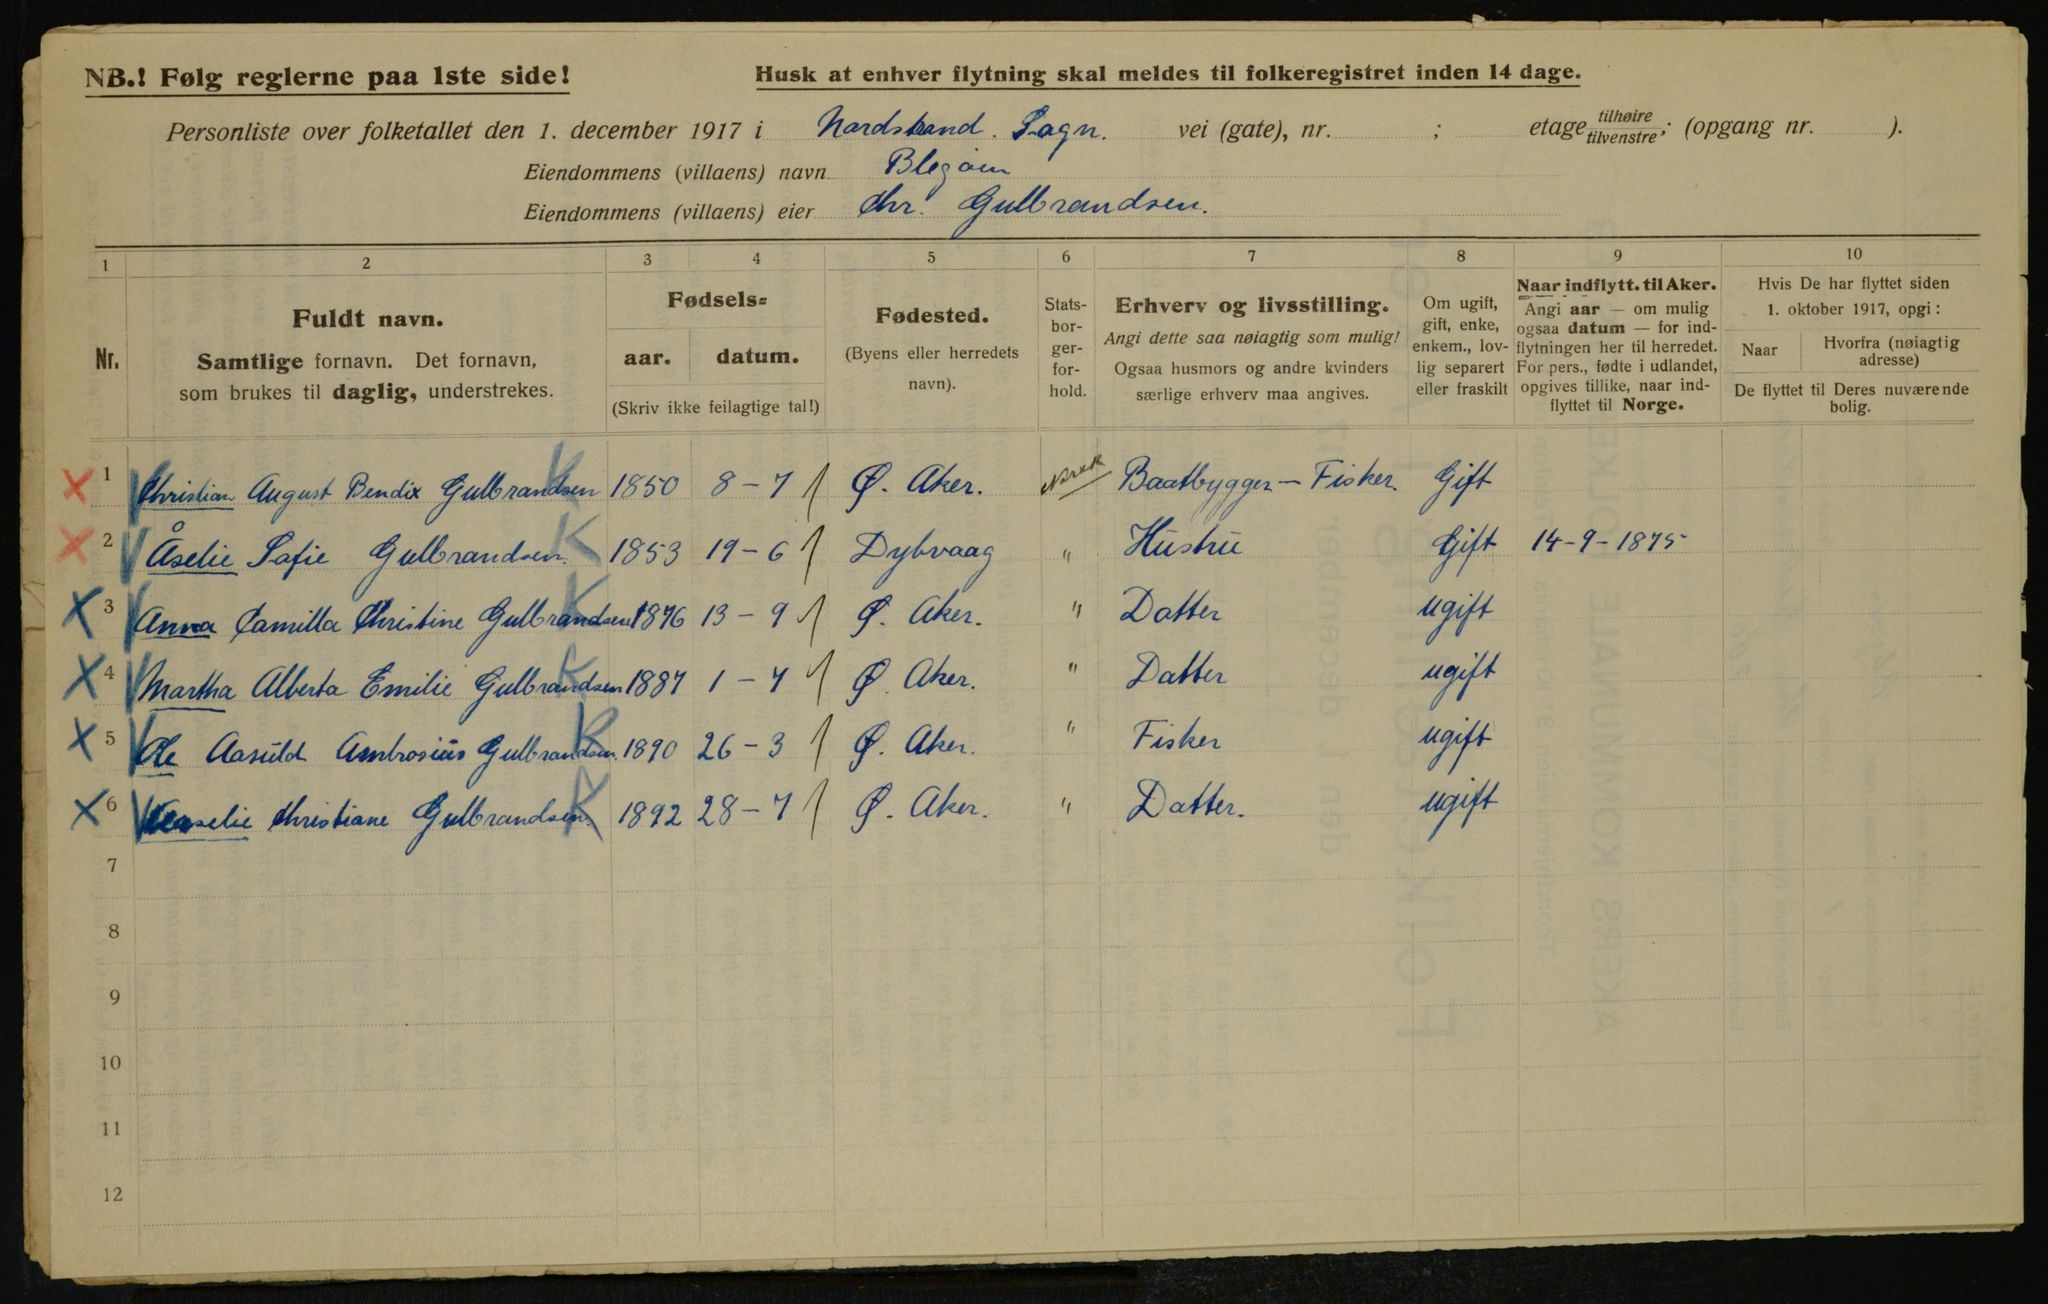 NB.! Følg reglerne paa 1ste side!
Husk at enhver flytning skal meldes til folkeregistret inden 14 dage.
Personliste over folketallet den 1. december 1917 i Nordstrand. Sogn. vei (gate), nr. ; etage tilhøire tilvenstre; (opgang nr. ).
Eiendommens (villaens) navn
Eiendommens (villaens) eier Chr. Gulbrandsen.
1 2 3 4 5 6 7 8 9 10
Nr.
Fuldt navn.
Samtlige fornavn. Det fornavn,
som brukes til daglig, understrekes.
Fødsels=
aar. datum.
(Skriv ikke feilagtige tal!)
Fødested.
(Byens eller herredets
navn).
Stats-
bor-
ger-
for-
hold.
Erhverv og livsstilling.
Angi dette saa nøiagtig som mulig!
Ogsaa husmors og andre kvinders
særlige erhverv maa angives.
Om ugift,
gift, enke,
enkem., lov-
lig separert
eller fraskilt
Naar indflytt. til Aker.
Angi aar — om mulig
ogsaa datum — for ind-
flytningen her til herredet.
For pers., fødte i udlandet,
opgives tillike, naar ind-
flyttet til Norge.
Hvis De har flyttet siden
1. oktober 1917, opgi:
Naar
Hvorfra (nøiagtig
adresse)
De flyttet til Deres nuværende
bolig.
X 1 Christian August Bendix Gulbrandsen K 1850 8-7 Ø. Aker. Norsk Baatbygger - Fisker. Gift
X 2 Åselie Sofie Gulbrandsen. K 1853 19-6 Dybvaag " Hustru Gift 14-9-1875
X 3 Anna Camilla Christine Gulbrandsen K 1876 13-9 Ø. Aker. " Datter ugift
X 4 Martha Alberta Emilie Gulbrandsen K 1887 1-7 Ø. Aker. " Datter ugift
X 5 Ole Aasuld Ambrosius Gulbrandsen. K 1890 26-3 Ø. Aker. " Fisker ugift
X 6 Christiane Gulbrandsen. K 1892 28-7 Ø. Aker. " Datter. ugift
7
8
9
10
11
12